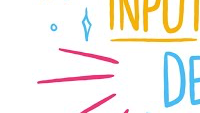 INPUT
DE